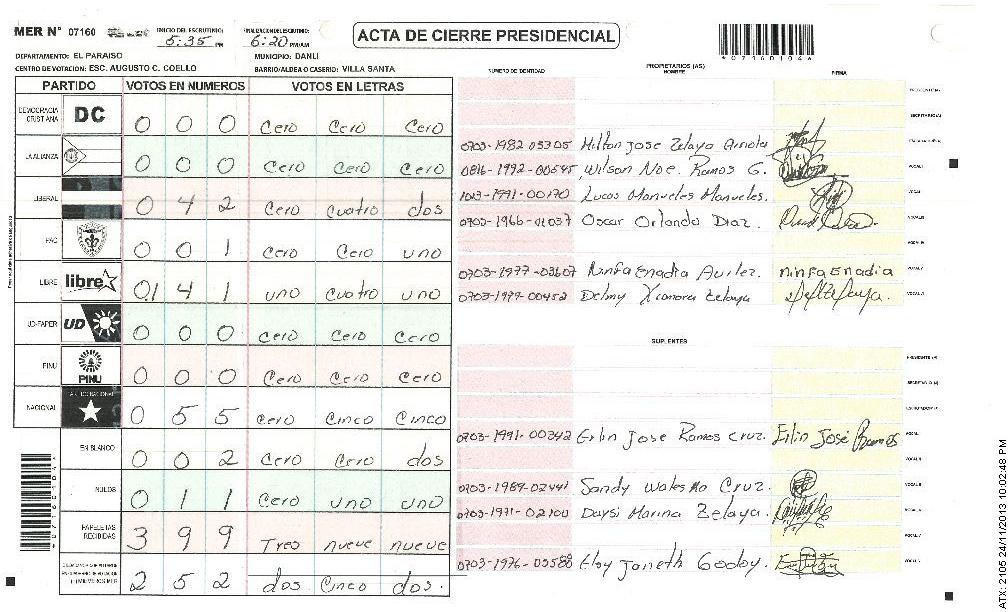 MER N° 07160
INICIO DEL ESCRUTINIO:
5:35 PM
FINALIZACION DEL ESCRUTINIO:
6:20 PM/AM
ACTA DE CIERRE PRESIDENCIAL
DEPARTAMENTO: EL PARAISO
MUNICIPIO: DANLI
CENTRO DE VOTACION: ESC. AUGUSTO C. COELLO
BARRIO/ALDEA O CASERIO: VILLA SANTA
PARTIDO VOTOS EN NUMEROS VOTOS EN LETRAS
DEMOCRACIA CRISTIANA DC 0 0 0 Cero Cero Cero
LA ALIANZA 0 0 0 Cero Cero Cero
LIBERAL 0 4 2 Cero Cuatro dos
PAC 0 0 1 Cero Cero uno
LIBRE libre 0 1 4 1 uno Cuatro uno
UD-FAPER UD 0 0 0 Cero Cero Cero
PINU PINU 0 0 0 Cero Cero Cero
NACIONAL 0 5 5 Cero Cinco Cinco
EN BLANCO 0 0 2 Cero Cero dos
NULOS 0 1 1 Cero uno uno
PAPELETAS RECIBIDAS 3 9 9 Tres nueve nueve
2 5 2 dos Cinco dos.
*07160104*
NUMERO DE IDENTIDAD
PROPIETARIOS (AS)
NOMBRE
FIRMA
PRESIDENTE(A)
SECRETARIO(A)
0703-1982 05305 Hilton Jose Zelaya Arriola ESCRUTADOR(A)
0816-1992-00545 Wilson Noe. Ramos G. VOCAL I
1003-1991-00170 Lucas Manueles Manueles.
0703-1966-01037 Oscar Orlando Diaz.
0703-1977-03607 Ninfa Enadia ninfa Enadia VOCAL V
0703-1979-00452 Delmy Xiomara Zelaya
SUPLENTES
PRESIDENTE (A)
SECRETARIO (A)
ESCRUTADOR (A)
0703-1991-00342 Erlin Jose Ramos Cruz. Erlin José Ramos VOCAL I
VOCAL II
0703-1989-02441 Sandy Cruz.
0703-1971-02100 Daysi Marina Zelaya.
0703-1976-03588 Elsy Janeth Godoy.
ATX: 2105 24/11/2013 10:02:48 PM